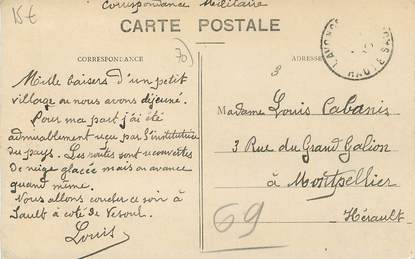 15€
Correspondance Militaire
CARTE POSTALE
CORRESPONDANCE
70
ADRESSE
HAUTE SAO
Mille baisers d'un petit
village ou nous avons déjeuné.
Pour ma part j'ai été
admirablement reçu par l'institutrice
du pays. Les routes sont recouvertes
de neige glacée mais on avance
quand même.
Nous allons coucher ce soir à
Sault à coté de Vesoul.
Louis
Madame Louis Cabanis
3 Rue du Grand Galion
à Montpellier
Hérault
69